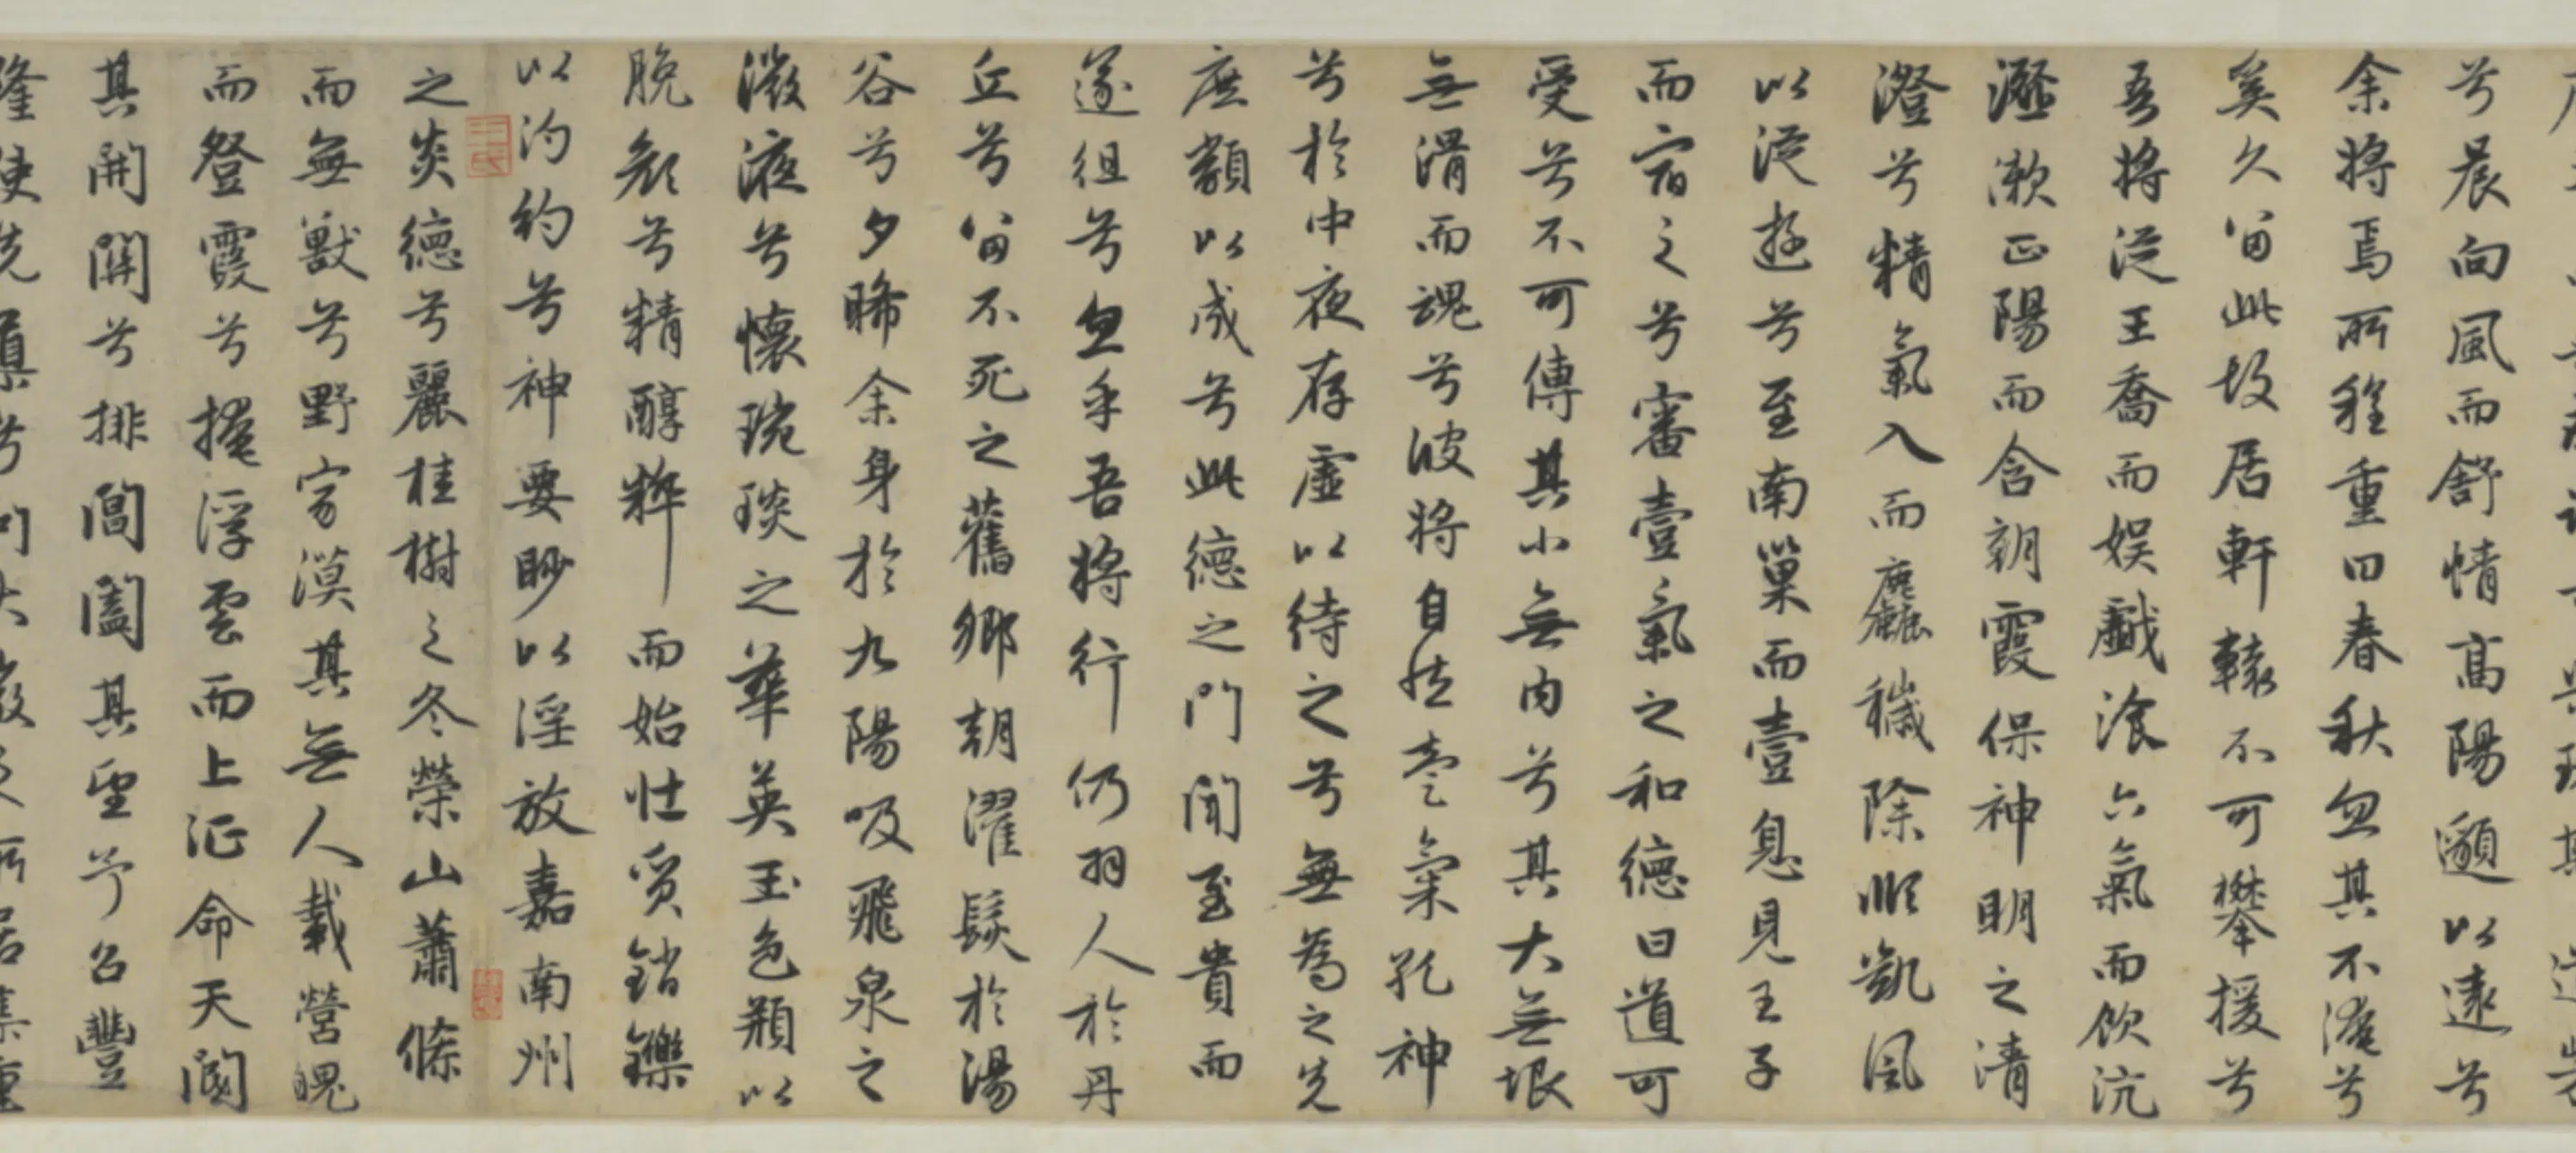 兮晨向風而舒情高陽邈以遠兮
余將焉所程重曰春秋忽其不淹兮
奚久留此故居軒轅不可攀援兮
吾將從王喬而娛戲飡六氣而飲沆
瀣漱正陽而含朝霞保神明之清
澄兮精氣入而麤穢除順凱風
以從遊兮至南巢而壹息見王子
而宿之兮審壹氣之和德曰道可
受兮不可傳其小無內兮其大無垠
無滑而魂兮彼將自然壹氣孔神
兮於中夜存虛以待之兮無為之先
庶類以成兮此德之門聞至貴而
遂徂兮忽乎吾將行仍羽人於丹
丘兮留不死之舊鄉朝濯髮於湯
谷兮夕晞余身於九陽吸飛泉之
微液兮懷琬琰之華英玉色頩以
脕顏兮精醇粹而始壯質銷鑠
以汋約兮神要眇以淫放嘉南州
之炎德兮麗桂樹之冬榮山蕭條
而無獸兮野寂漠其無人載營魄
而登霞兮掩浮雲而上征命天閽
其開關兮排閶闔其望予召豐